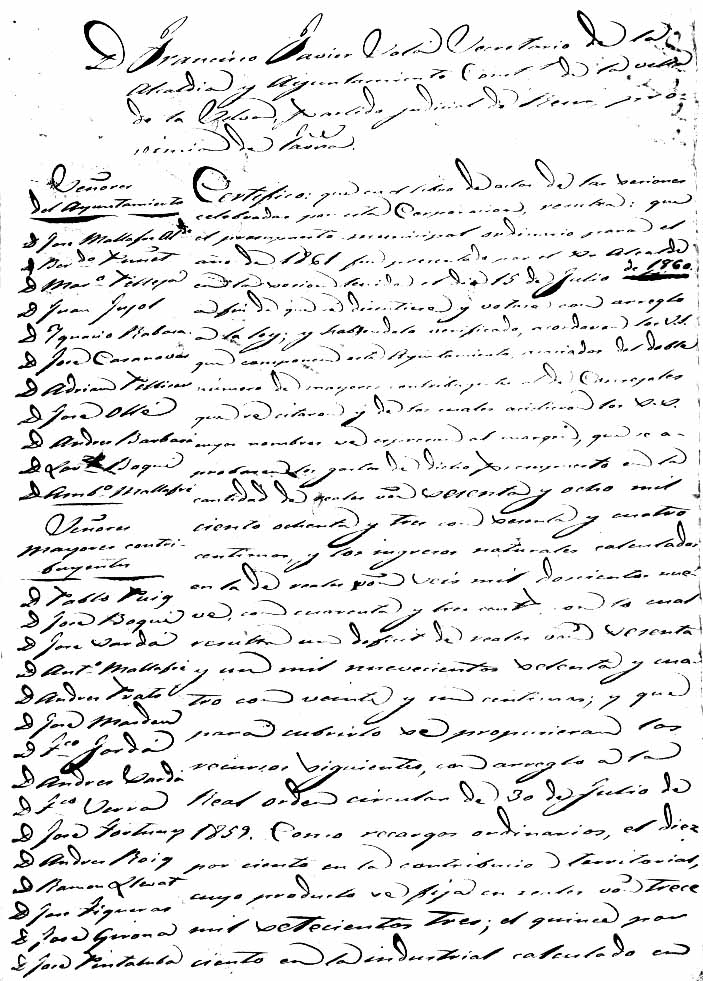 D. Francisco Javier Vola Secretario de la
Alcaldia y Ayuntamiento Const.l de la villa
de la Selva, partido judicial de Reus, pro-
vincia de
Señores
del Ayuntamiento
D. Jose Mallafre Al.de
D. Ber.do
D. Mar.o
D. Juan Jujol
D. Ygnacio Rabasa
D. Jose Casanovas
D. Adrian
D. Jose Ollé
D. Andres Barbará
D. Boqué
D. Ant.o Mallafré
Señores
mayores contri-
buyentes
D. Pablo Puig
D. Jose Boqué
D. Jose Sardá
D. Ant.o Mallafré
D. Andres Prats
D. Jose
D. F.co Jordá
D. Andres Sardá
D. F.co Serra
D. Jose Fortuny
D. Andres Roig
D. Ramon Llevat
D. Jose Figueras
D. Jose Girona
D. Jose
Certifico: que en el libro de actas de las sesiones
celebradas por esta Corporacion, resulta: que
el presupuesto municipal ordinario para el
año de 1861 fue presentado por el Sr. Alcalde
en la sesion tenida el dia 15 de Julio de 1860.
a fin de que se discutiera y votara con arreglo
a la ley; y habiendolo verificado, acordaron los S.S.
que componen este Ayuntamiento, asociados del doble
número de mayores contribuyentes al de Concejales
que se citaron y de los cuales asistieron los S.S.
cuyos nombres se espresan al margen, que se a-
probaran los gastos de dicho presupuesto en la
cantidad de reales von sesenta y ocho mil
ciento ochenta y tres con sesenta y cuatro
centimos, y los ingresos naturales calculados
en la de reales von seis mil doscientos nue-
ve, con cuarenta y tres cent.s, con lo cual
resulta un deficit de reales von sesenta
y un mil nuevecientos setenta y cua-
tro con veinte y un centimos; y que
para cubrirlo se propusieran los
recursos siguientes, con arreglo a la
Real orden circular de 30 de Julio de
1859. Como recargos ordinarios, el diez
por ciento en la contribucion territorial,
cuyo producto se fija en reales von trece
mil setecientos tres; el quince por
ciento en la industrial calculado en